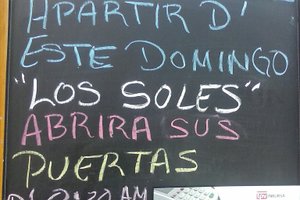 APARTIR D'
ESTE DOMINGO
"LOS SOLES"
ABRIRA SUS
PUERTAS
AM